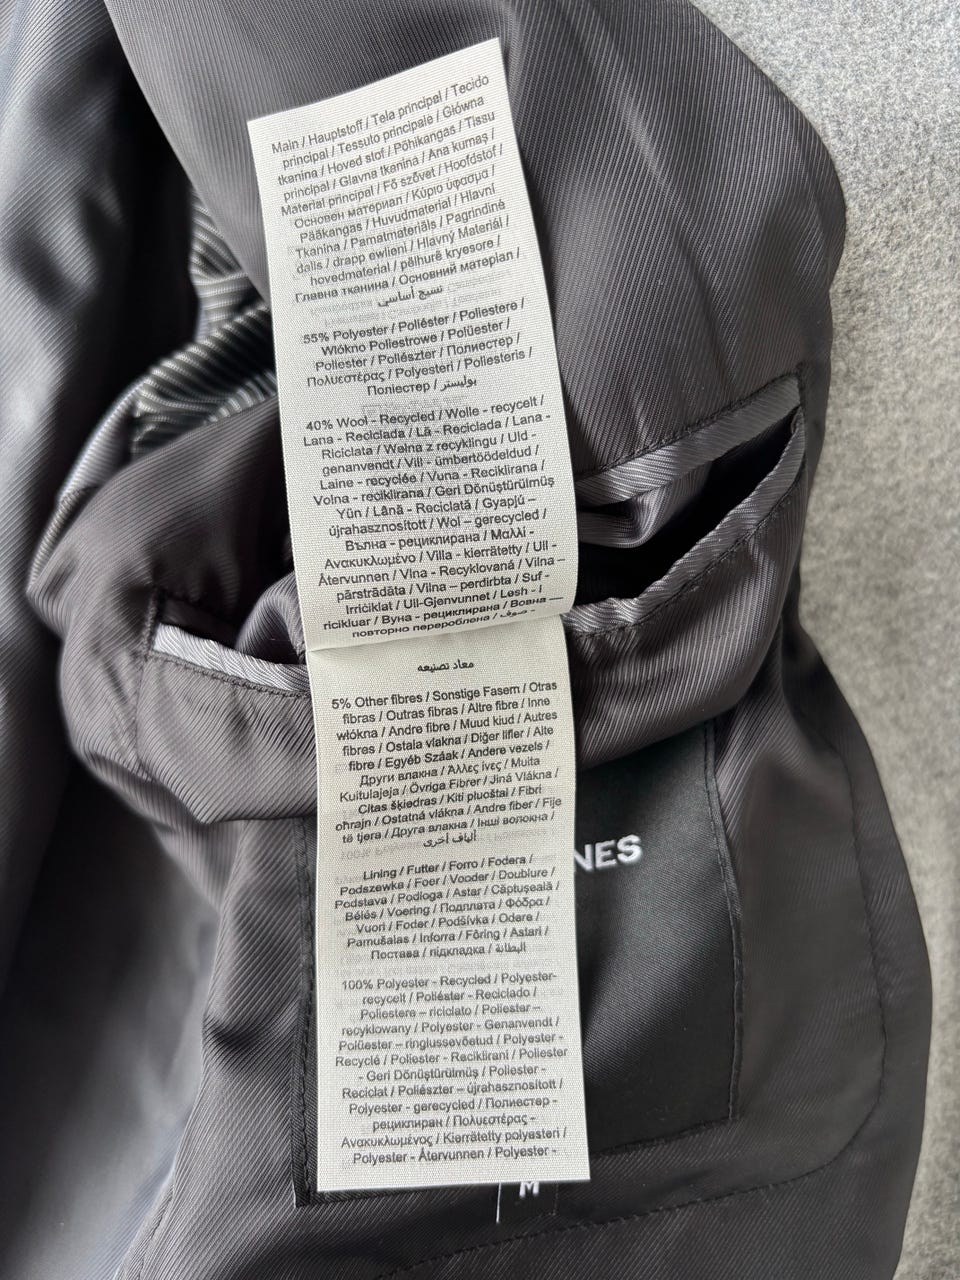 Main / Hauptstoff / Tela principal / Tecido
principal / Tessuto principale / Główna
tkanina / Hoved stof / Põhikangas / Tissu
principal / Glavna tkanina / Ana kumaş /
Material principal / Fő szövet / Hoofdstof /
Основен материал / Κύριο ύφασμα /
Pääkangas / Huvudmaterial / Hlavní
Tkanina / Pamatmateriāls / Pagrindinė
dalis / drapp ewlieni / Hlavný Materiál /
hovedmaterial / pëlhurë kryesore /
Главна тканина / Основний матеріал /
نسيج أساسي
55% Polyester / Poliéster / Poliestere /
Włókno Poliestrowe / Polüester /
Poliester / Poliészter / Полиестер /
Πολυεστέρας / Polyesteri / Poliesteris /
Поліестер / بوليستر
40% Wool - Recycled / Wolle - recycelt /
Lana - Reciclada / Lã - Reciclada / Lana -
Riciclata / Wełna z recyklingu / Uld -
genanvendt / Vill - ümbertöödeldud /
Laine - recyclée / Vuna - Reciklirana /
Volna - reciklirana / Geri Dönüştürülmüş
Yün / Lână - Reciclată / Gyapjú –
újrahasznosított / Wol – gerecycled /
Вълна - рециклирана / Μαλλί -
Ανακυκλωμένο / Villa - kierrätetty / Ull -
Återvunnen / Vlna - Recyklovaná / Vilna –
pārstrādāta / Vilna – perdirbta / Suf -
Irriċiklat / Ull-Gjenvunnet / Lesh - i
ricikluar / Вуна - рециклирана / Вовна —
повторно перероблена / صوف -
معاد تصنيعه
5% Other fibres / Sonstige Fasern / Otras
fibras / Outras fibras / Altre fibre / Inne
włókna / Andre fibre / Muud kiud / Autres
fibres / Ostala vlakna / Diğer lifler / Alte
fibre / Egyéb Száak / Andere vezels /
Други влакна / Άλλες ίνες / Muita
Kuitulajeja / Övriga Fibrer / Jiná Vlákna /
Citas šķiedras / Kiti pluoštai / Fibri
oħrajn / Ostatná vlákna / Andre fiber / Fije
të tjera / Друга влакна / Інші волокна /
ألياف أخرى
Lining / Futter / Forro / Fodera /
Podszewka / Foer / Vooder / Doublure /
Podstava / Podloga / Astar / Căptușeală /
Bélés / Voering / Подплата / Φόδρα /
Vuori / Foder / Podšívka / Odere /
Pamušalas / Inforra / Fôring / Astari /
Постава / підкладка / البطانة
100% Polyester - Recycled / Polyester-
recycelt / Poliéster - Reciclado /
Poliestere – riciclato / Poliester –
recyklowany / Polyester - Genanvendt /
Polüester – ringlussevõetud / Polyester -
Recyclé / Poliester - Reciklirani / Poliester
- Geri Dönüştürülmüş / Poliester -
Reciclat / Poliészter – újrahasznosított /
Polyester - gerecycled / Полиестер -
рециклиран / Πολυεστέρας -
Ανακυκλωμένος / Kierrätetty polyesteri /
Polyester - Återvunnen / Polyester -
NES
M